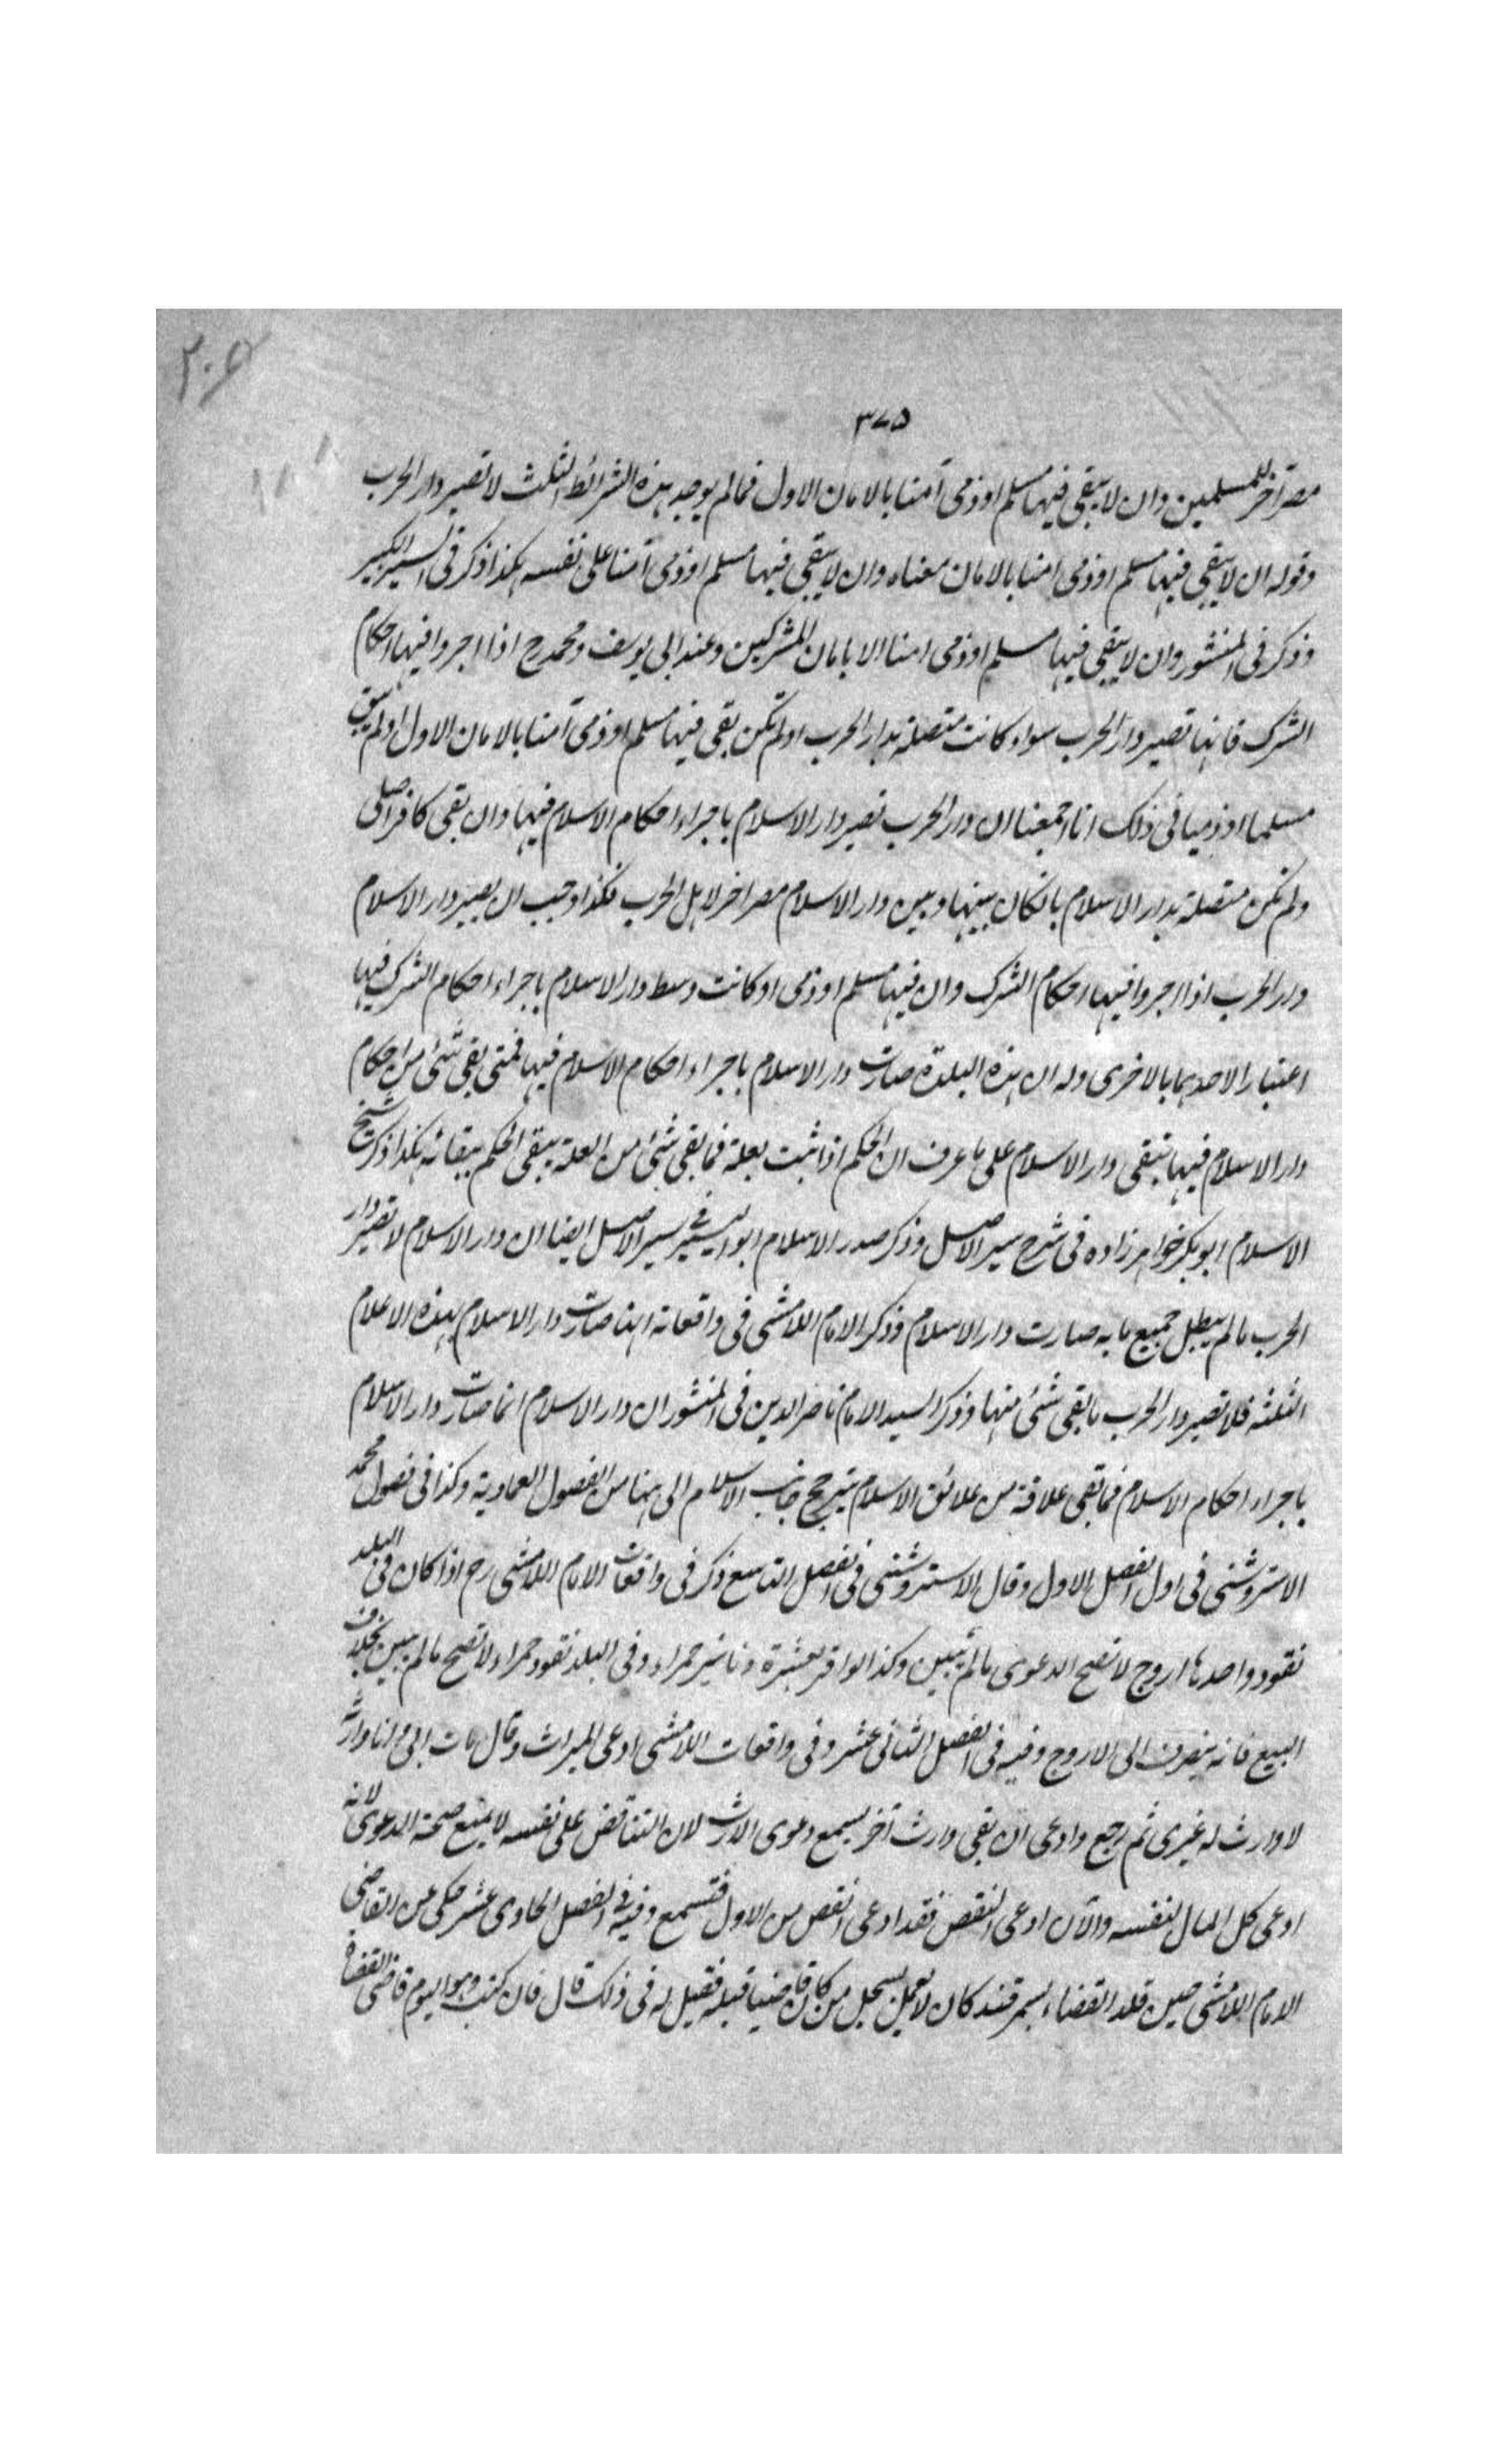 ٣٠٥
٣٧٥
مصر آخر للمسلمين وان لا يبقى فيها مسلم او ذمى آمنا بالامان الاول فمالم يوجد هذه الشرائط الثلث لا تصير دار الحرب
وقوله ان لا يبقى فيها مسلم او ذمى امنا بالامان معناه وان لا يبقى فيها مسلم او ذمى آمنا على نفسه هكذا ذكر فى السير الكبير
وذكر فى المنشور وان لا يبقى فيها مسلم او ذمى امنا الا بامان المشركين وعند ابى يوسف ومحمد رح اذا اجروا فيها احكام
الشرك فانها تصير دار الحرب سواء كانت متصلة بدار الحرب او لم تكن بقى فيها مسلم او ذمى آمنا بالامان الاول او لم يبق
مسلما او ذميا فى ذلك انا اجمعنا ان دار الحرب تصير دار الاسلام باجراء احكام الاسلام فيها وان بقى كافر اصلى
ولم تكن متصلة بدار الاسلام بان كان بينها وبين دار الاسلام مصر اخر لاهل الحرب فكذا وجب ان يصير دار الاسلام
دار الحرب اذا اجروا فيها احكام الشرك وان فيها مسلم او ذمى او كانت وسط دار الاسلام باجراء احكام الشرك فيها
اعتبار الاحدهما بالاخرى وله ان هذه البلدة صارت دار الاسلام باجراء احكام الاسلام فيها فمتى بقى شئ من احكام
دار الاسلام فيها تبقى دار الاسلام على ما عرف ان الحكم اذا ثبت بعلة فما بقى شئ من العلة يبقى الحكم ببقائه هكذا ذكر شيخ
الاسلام ابو بكر خواهر زاده فى شرح سير الاصل وذكر صدر الاسلام ابو اليسر فى سير الاصل ايضا ان دار الاسلام لا تصير دار
الحرب مالم يبطل جميع ما به صارت دار الاسلام وذكر الامام اللامشى فى واقعاته انها صارت دار الاسلام بهذه الاعلام
الثلثه فلا تصير دار الحرب ما بقى شئ منها وذكر السيد الامام ناصر الدين فى المنشور ان دار الاسلام انما صارت دار الاسلام
باجراء احكام الاسلام فما بقى علاقة من علائق الاسلام يترجح جانب الاسلام الى هنا من الفصول العمادية وكذا فى فصول محمد
الاستروشنى فى اول الفصل الاول وقال الاستروشنى فى الفصل التاسع ذكر فى واقعات الامام اللامشى رح اذا كان فى البلد
نقود واحدها اروج لا تصح الدعوى مالم تبين وكذا لو اقر بعشرة دنانير حمراء وفى البلد نقود حمراء لا تصح مالم يبين بخلاف
البيع فانه ينصرف الى الاروج وفيه فى الفصل الثانى عشر وفى واقعات اللامشى ادعى الميراث وقال مات ابى وانا وارثه
لا وارث له غيرى ثم رجع وادعى ان بقى وارث آخر يسمع دعوى الارث لان التناقض على نفسه لا يمنع صحة الدعوى لانه
ادعى كل المال لنفسه والآن ادعى النقص فقد ادعى انقص من الاول فتسمع وفيه فى الفصل الحادى عشر حكى عن القاضى
الامام اللامشى حين قلد القضاء بسمرقند كان لا يعمل بسجل من كان قاضيا قبله فقيل له فى ذلك قال فان كتب وهو اليوم قاضى القضاة